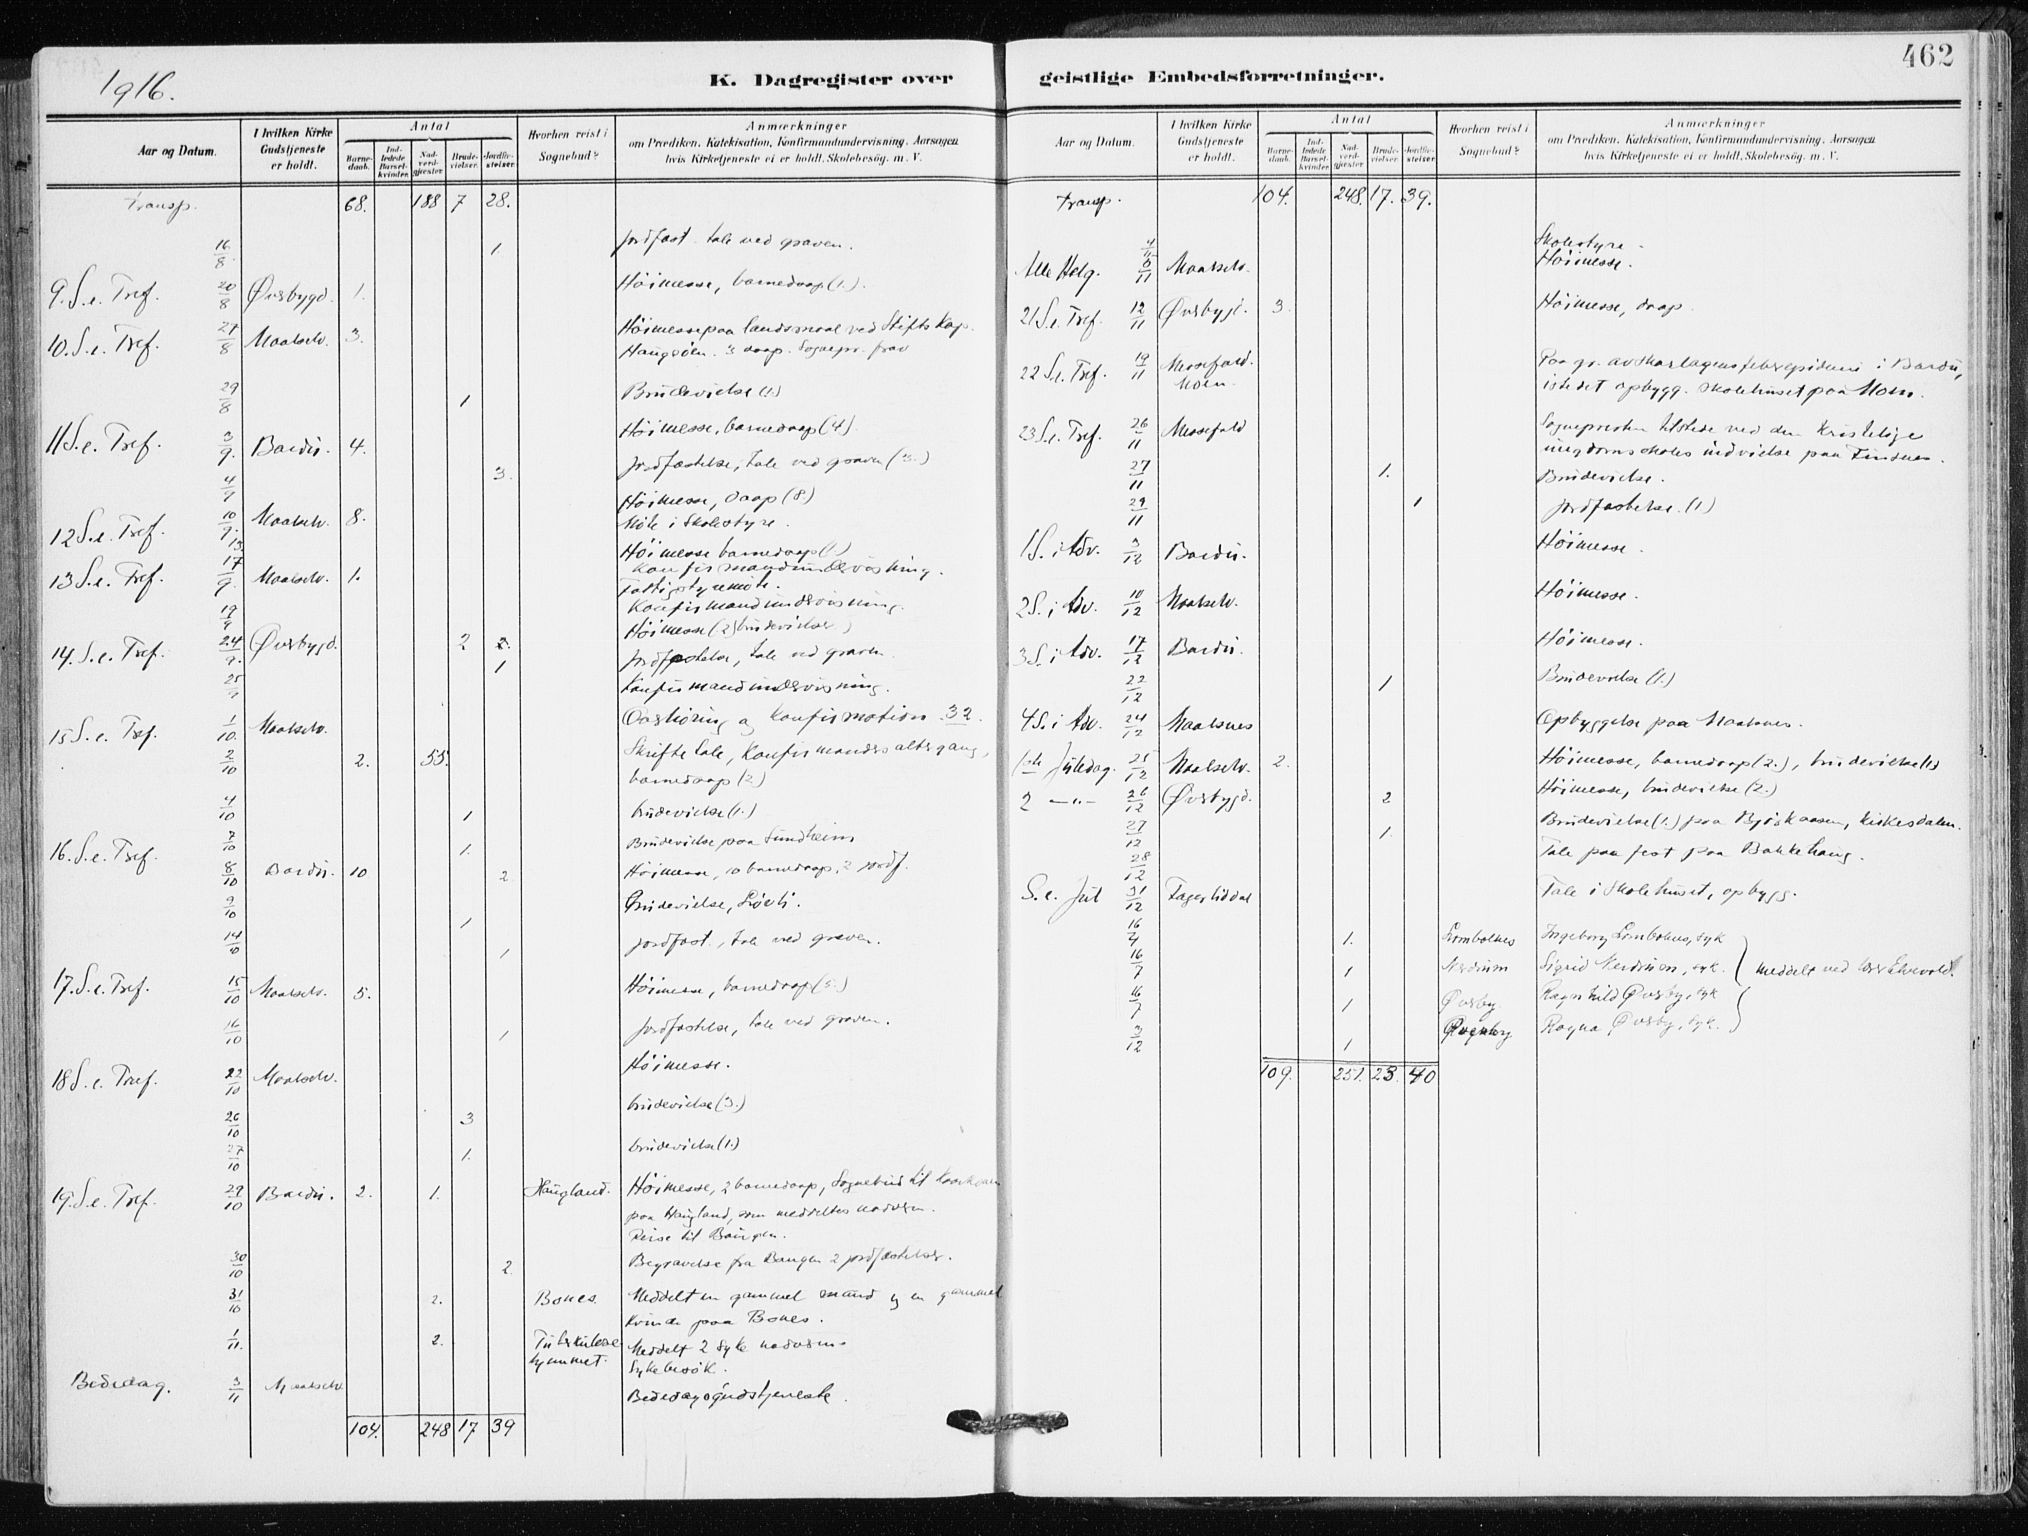 462
1916.
K. Dagregister over geistlige Embedsforretninger.
Aar og Datum. I hvilken Kirke Gudstjeneste er holdt. Antal Barnedaab. Indledede Barselkvinder. Nadverdgjester Brudevielser. Jordfæstelser Hvorhen reist i Sognebud? Anmærkninger om Prædiken, Katekisation, Konfirmandundervisning, Aarsagen hvis Kirketjeneste ei er holdt, Skolebesøg, m. V.
Transp. 68. 188 7 28.
16/8. 1 Jordfæst. tale ved graven.
9. S. e. Tref. 20/8 Øvrbygd. 1. Höimesse, barnedaap (1.).
10. S. e. Tref. 27/8 Maalselv. 3. Höimesse paa landsmaal ved Stifts Kap.
Haugsöen. 3 daap. Sognepr. frav
29/8 1 Brudevielse (1)
11 S. e. Tref. 3/9. Bardu. 4. Höimesse, barnedaap (4).
4/9 3. Jordfæstelse, tale ved graven (3.)
12 S. e. Tref. 10/9. Maalselv. 8. Höimesse, daap (8.)
13 Möte i Skolestyre.
13 S. e. Tref. 17/9. Maalselv. 1. Höimesse barnedaap (1)
Konfirmandundervisning.
Fattigstyremöte.
19/9 Konfirmandundervisning.
14. S. e. Tref. 24/9. Øvrbygd. 2 Höimesse (2 brudevielser)
1 Jordfæstelse, tale ved graven
25/9 Konfirmandundervisning.
15 S. e. Tref. 1/10. Maalselv. Overhöring og Konfirmation 32.
2/10 2. 55. Skriftetale, Konfirmandes altergang,
barnedaap (2)
4/10 1 brudevielse (1.)
7/10 1. Brudevielse paa Sundheim
16. S. e. Tref. 8/10 Bardu. 10 2 Höimesse, 10 barnedaap, 2 jordf.
9/10 1 Brudevielse,
14/10 1 Jordfæst., tale ved graven.
17. S. e. Tref. 15/10 Maalselv. 5. Höimesse, barnedaap (5.)
16/10 1 Jordfæstelse, tale ved graven.
18 S. e. Tref. 22/10 Maalselv. Höimesse.
26/10 3 brudevielse (3.)
27/10 1. brudevielse (1.)
19. S. e. Tref. 29/10 Bardu. 2. 1. Haugland. Höimesse, 2 barnedaap, Sognebud til
paa Haugland, som meddeltes nadveren.
Reise til Bangen.
30/10 2 Begravelse fra Bangen 2 jordfæstelser.
31/10 2. Bones. Meddelt en gammel mand og en gammel
kvinde paa Bones.
1/11. 2. Tuberkulosehjemmet. Meddelt 2 syke nadveren
Sykebesök.
Bededag. 3/11 Maalselv Bededagsgudstjeneste.
104. 248 17 39
Aar og Datum. I hvilken Kirke Gudstjeneste er holdt. Antal Barnedaab. Indledede Barselkvinder. Nadverdgjester Brudevielser. Jordfæstelser Hvorhen reist i Sognebud? Anmærkninger om Prædiken, Katekisation, Konfirmandundervisning, Aarsagen hvis Kirketjeneste ei er holdt, Skolebesøg, m. V.
Transp. 104. 248. 17. 39.
4/11 Skolestyre.
Alle Helg. 6/11 Maalselv. Höimesse.
21 S. e. Tref. 12/11 Øvrbygd. 3. Höimesse, daap.
22 S. e. Tref. 19/11 Messefald. Moen. Paa gr. av skarlagensfeberepidemi i Bardu,
istedet opbygg. skolehuset paa Moen.
23 S. e. Tref. 26/11 Messefald Sognepresten tilstede ved den Kristelige
ungdomsskoles indvielse paa Finsnes.
27/11 1. Brudevielse.
29/11 1 Jordfæstelse. (1)
1 S. i Adv. 3/12 Bardu. Höimesse.
2 S. i Adv. 10/12 Maalselv. Höimesse.
3 S. i Adv. 17/12 Bardu. Höimesse.
22/12 1 Brudevielse (1.)
4 S. i Adv. 24/12 Maalsnes Opbyggelse paa Maalsnes.
1ste Juledag. 25/12 Maalselv. 2. Höimesse, barnedaap (2.), brudevielse (1)
2 — " — 26/12 Øvrbygd. 2 Höimesse, brudevielse (2.)
27/12 1. Brudevielse (1.) paa Björkaasen, Kirkesdalen.
28/12 Tale paa fest paa Bakkehaug.
S. e. Jul 31/12 Fagerliddal Tale i Skolehuset, opbygg.
16/4 1. Lombolnes Ingeborg Lombolnes, syk
16/7 1 Nerdrum Sigrid , syk. meddelt ved
16/7 1 Øvrby. Ragnhild Øvrby, syk
3/12 1 Ragna Øvrby, syk.
109. 251. 23. 40